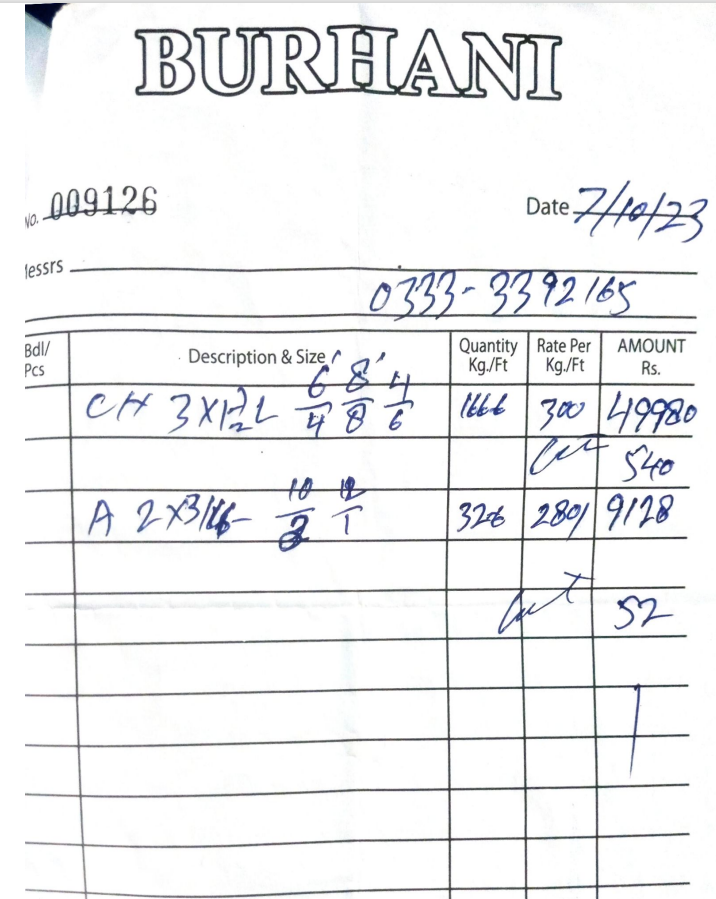 BURHANI
No. 009126 Date 7/10/23
Messrs
0333-3392165
Bdl/ Pcs Description & Size Quantity Kg./Ft Rate Per Kg./Ft AMOUNT Rs.
6' 8' 4
CH 3X1½L 4 8 6 1666 300 49980
Cut 540
10 12
A 2X3/16- 2 1 326 280/ 9128
Cut 52